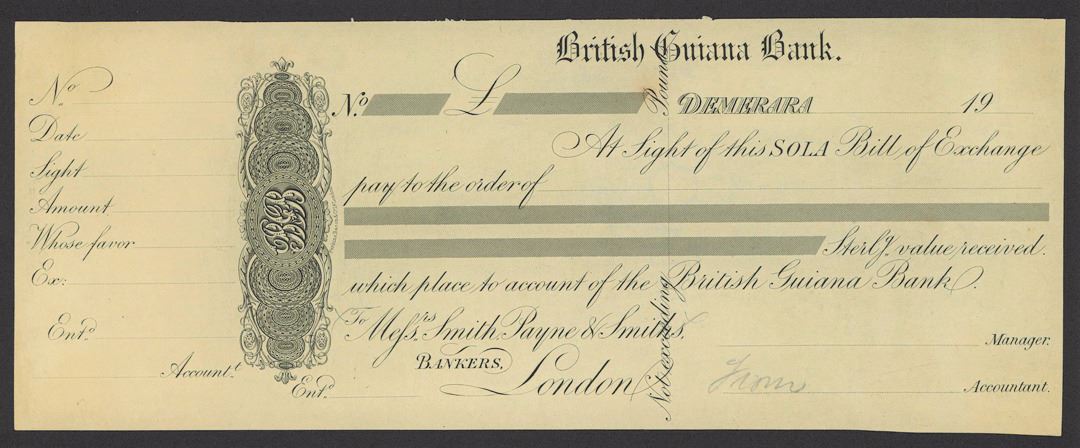 British Guiana Bank.
No.
Date
Sight
Amount
Whose favor
Ex:
Entd.
Accountt.
No. £ DEMERARA 19
At Sight of this SOLA Bill of Exchange
pay to the order of
Sterlg. value received.
which place to account of the British Guiana Bank.
To Messrs. Smith, Payne & Smiths,
BANKERS,
London
Entd.
Manager.
Accountant.
Not exceeding Pounds